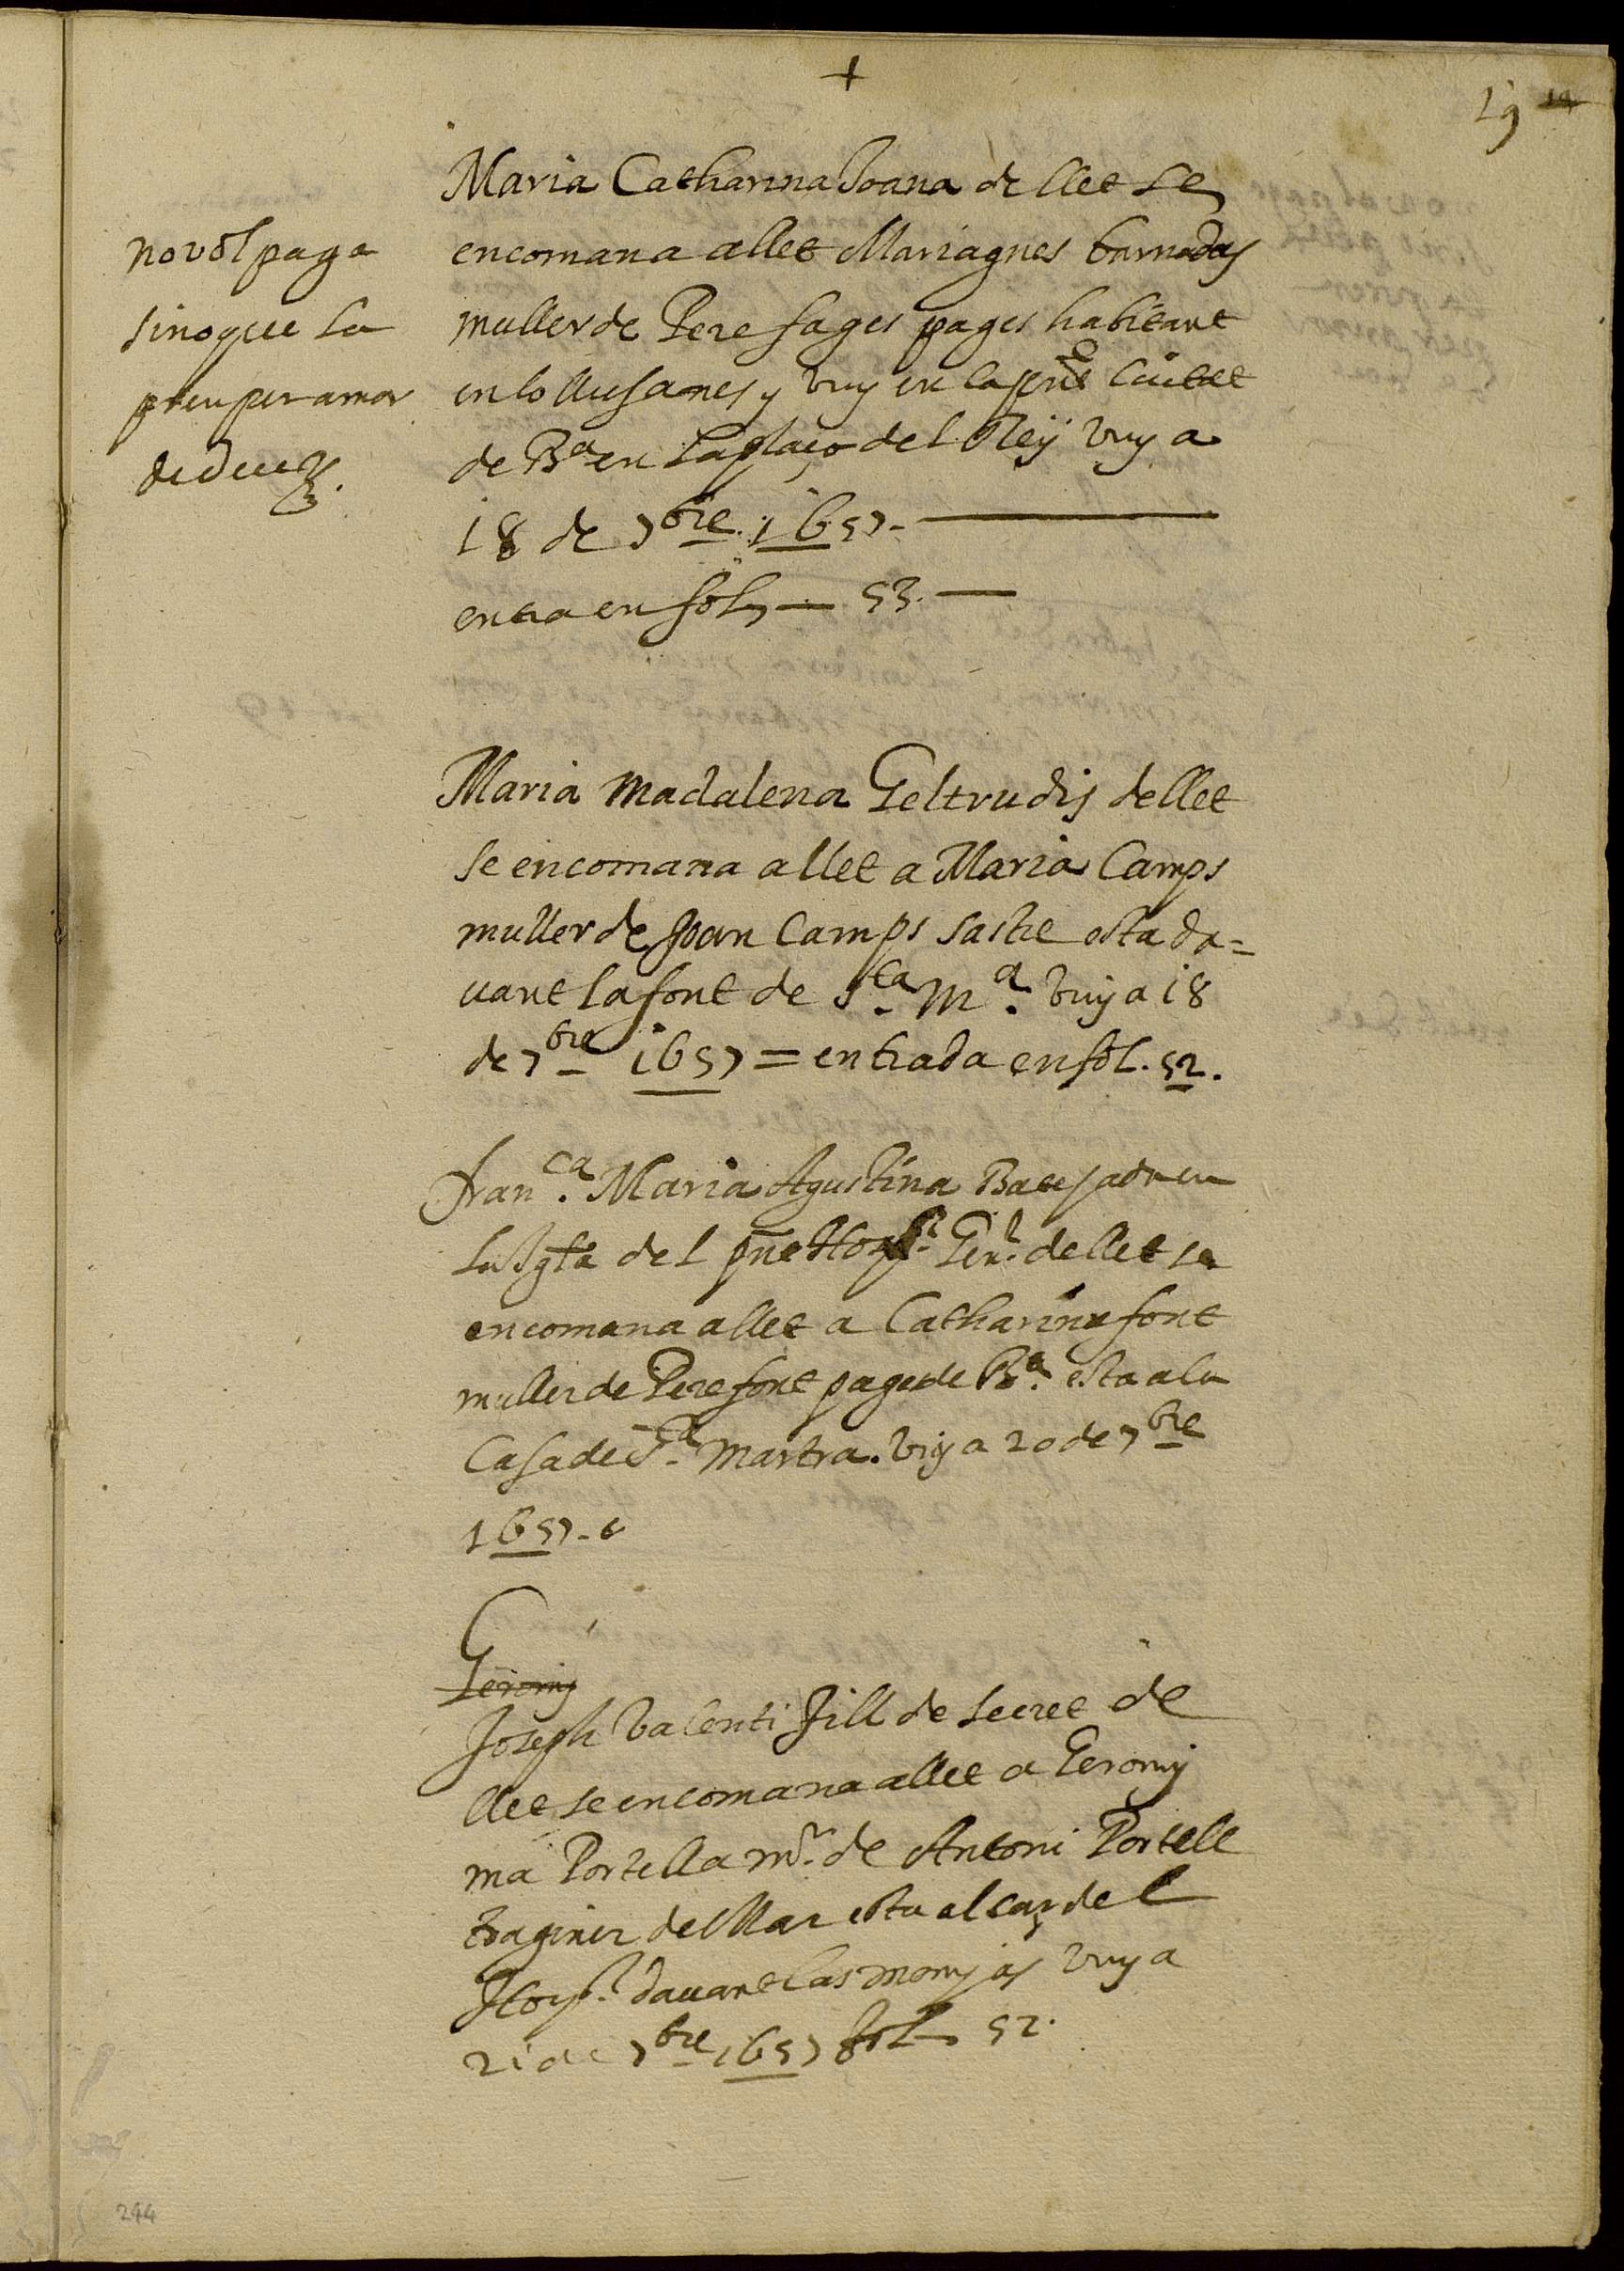 +
19 14
Maria Catharina Joana de llet se
encomana a llet Mariagnes barnadas
muller de Pere sages pages habitant
en lo llusanes y vuy en la pnt Ciutat
de Bª en la plaça del Reÿ vuy a
18 de 7bre 1657 —
entra en fol, — 53. —
no vol paga
sinoque la
pren per amor
de deu
Maria Madalena Geltrudis de llet
se encomana a llet a Maria Camps
muller de Joan Camps sastre esta da=
uant la font de Sta Mª. vuy a 18
de 7bre 1657 = entrada en fol. 52.
Franca. Maria Agustina Batejada en
la Igla del pnt Hospl. Genl. de llet se
encomana a llet a Catharina font
muller de Pere font pages de Bª. esta a la
Casa de Sª. Martra. vuy a 20 de 7bre
1657
G
Geromi
Joseph Valenti fill de secret de
llet se encomana a llet a Gerony
ma Portella mr. de Antoni Portell
traginer de Mar esta al cap del
Hospl. dauant las monjas vuy a
21 de 7bre 1657 fol 52.
244